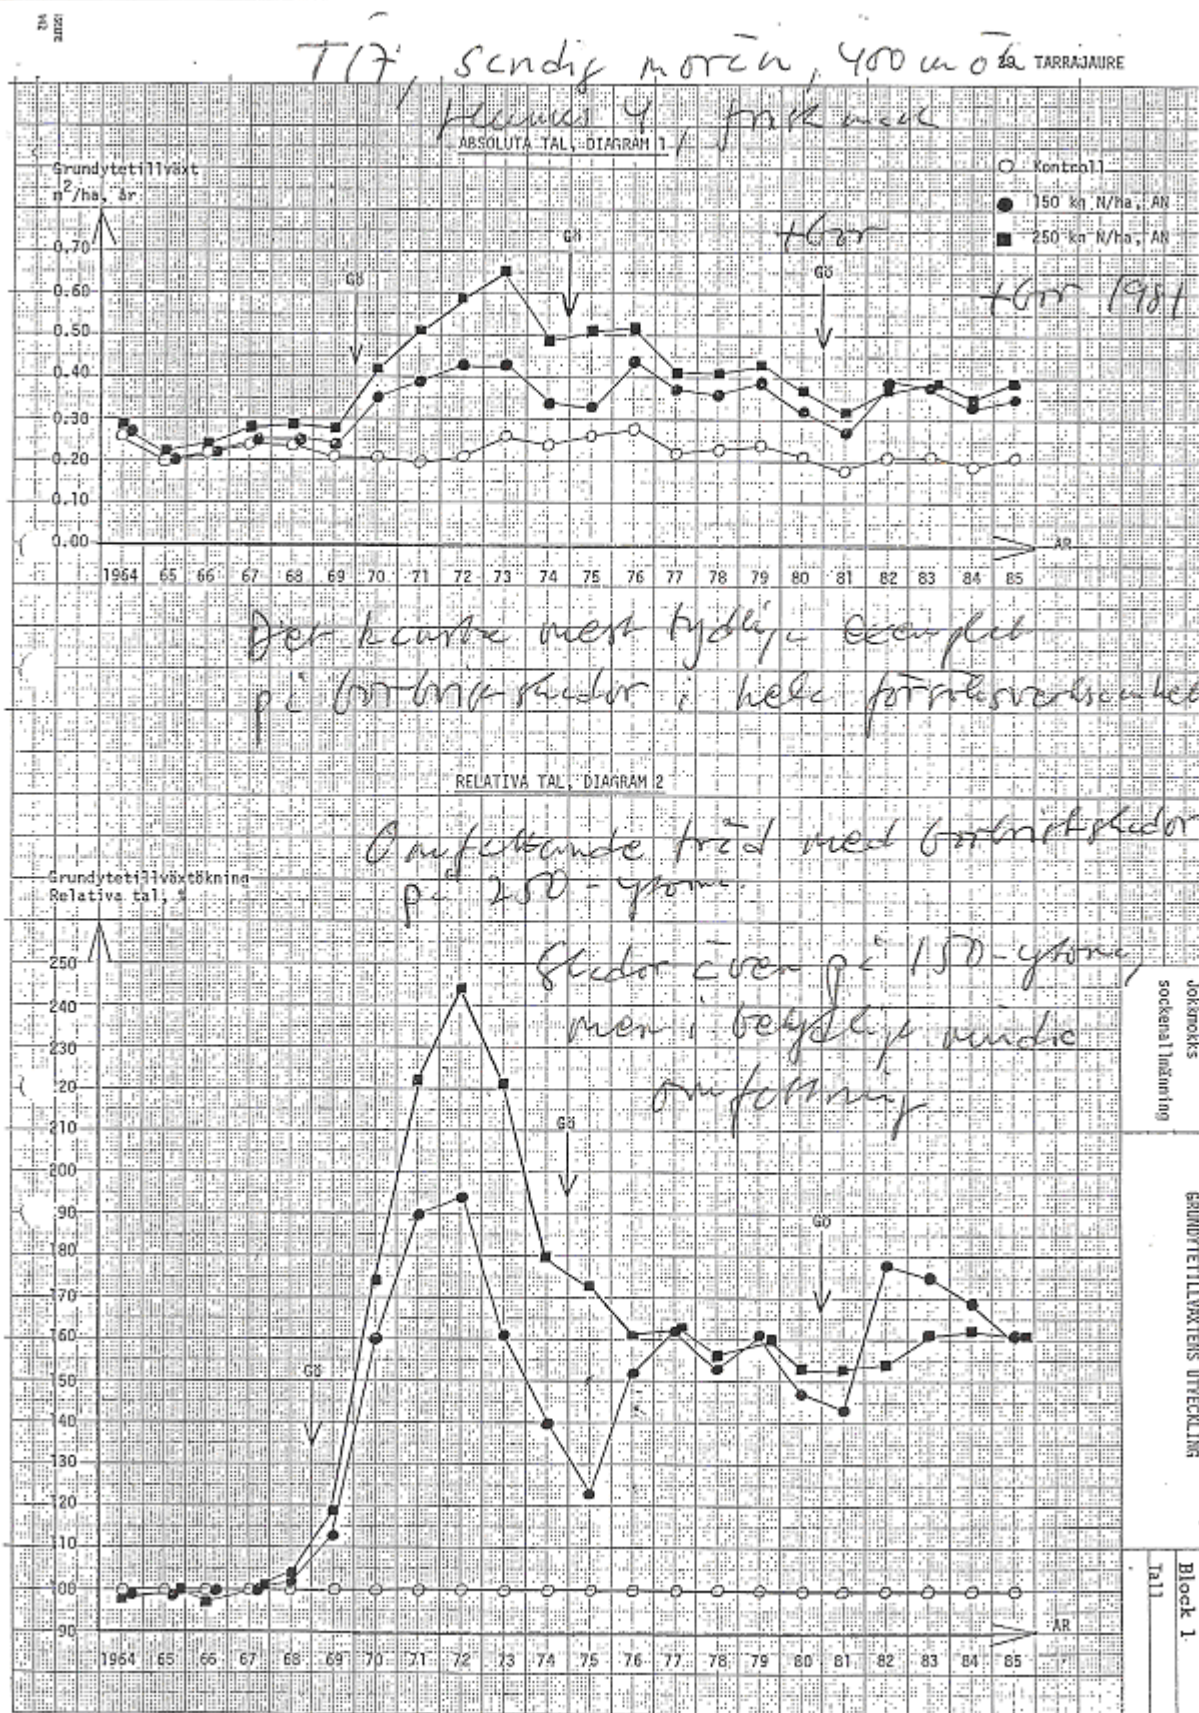 T17, sandig morän, 400 m ö h
29. TARRAJAURE
Humus 4, frisk mark
ABSOLUTA TAL, DIAGRAM 1
Grundytetillväxt
m²/ha, år
Kontroll
150 kg N/ha, AN
250 kg N/ha, AN
+Bor
+Bor 1981
Gö
Gö
Gö
0.70
0.60
0.50
0.40
0.30
0.20
0.10
0.00
ÅR
1964 65 66 67 68 69 70 71 72 73 74 75 76 77 78 79 80 81 82 83 84 85
Det kanske mest tydliga exemplet
på borbristskador i hela försöksverksamhet
RELATIVA TAL, DIAGRAM 2
Omfattande träd med borbristskador
på 250-ytorna.
Grundytetillväxtökning
Relativa tal, %
Skador även på 150-ytorna,
men i betydligt mindre
omfattning
Gö
Gö
Gö
250
240
230
220
210
200
190
180
170
160
150
140
130
120
110
100
90
ÅR
1964 65 66 67 68 69 70 71 72 73 74 75 76 77 78 79 80 81 82 83 84 85
Jokkmokks
sockenallmänning
GRUNDYTETILLVÄXTENS UTVECKLING
Block 1
Tall